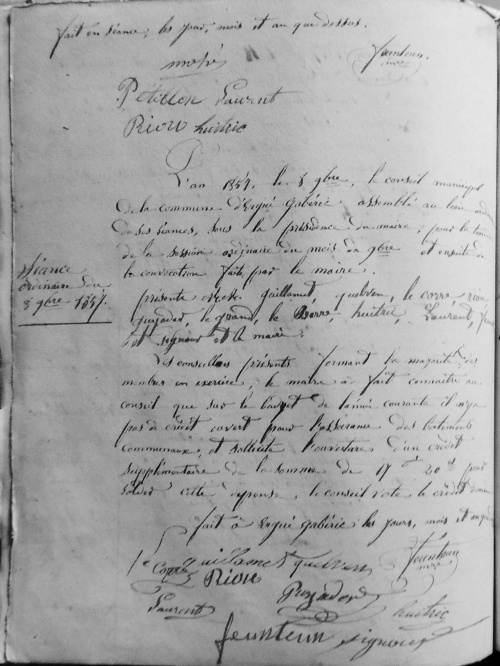 fait en séance, les jour, mois et an que dessus.
Feunteun
mre
Petillon Laurent
Riou huitric
L'an 1857, le 8 9bre, le conseil municipal
de la commune d'Ergué Gabéric assemblé au lieu
de ses séances, sous la présidence du maire, pour la
de la session ordinaire du mois de 9bre et ensuite de
la convocation faite par le maire.
Séance
ordinaire du
8 9bre 1857.
présents Guillamet, quelven, le corre, riou,
guyader, le grand, le Berre, huitric, Laurent,
signour et le maire.
Les conseillers présents formant la majorité des
membres en exercice, le maire a fait connaître au
conseil que sur le budget de l'année courante il n'y a
pas de crédit ouvert pour l'assurance des bâtiments
communaux, et sollicite l'ouverture d'un crédit
supplémentaire de la somme de 17 f 20 c pour
solder cette dépense, le conseil vote le crédit
fait à Ergué Gabéric les jours, mois et
le Corre Guillamet quelven Feunteun
mre
Riou
Guyader
Laurent huitric
feunteun signour